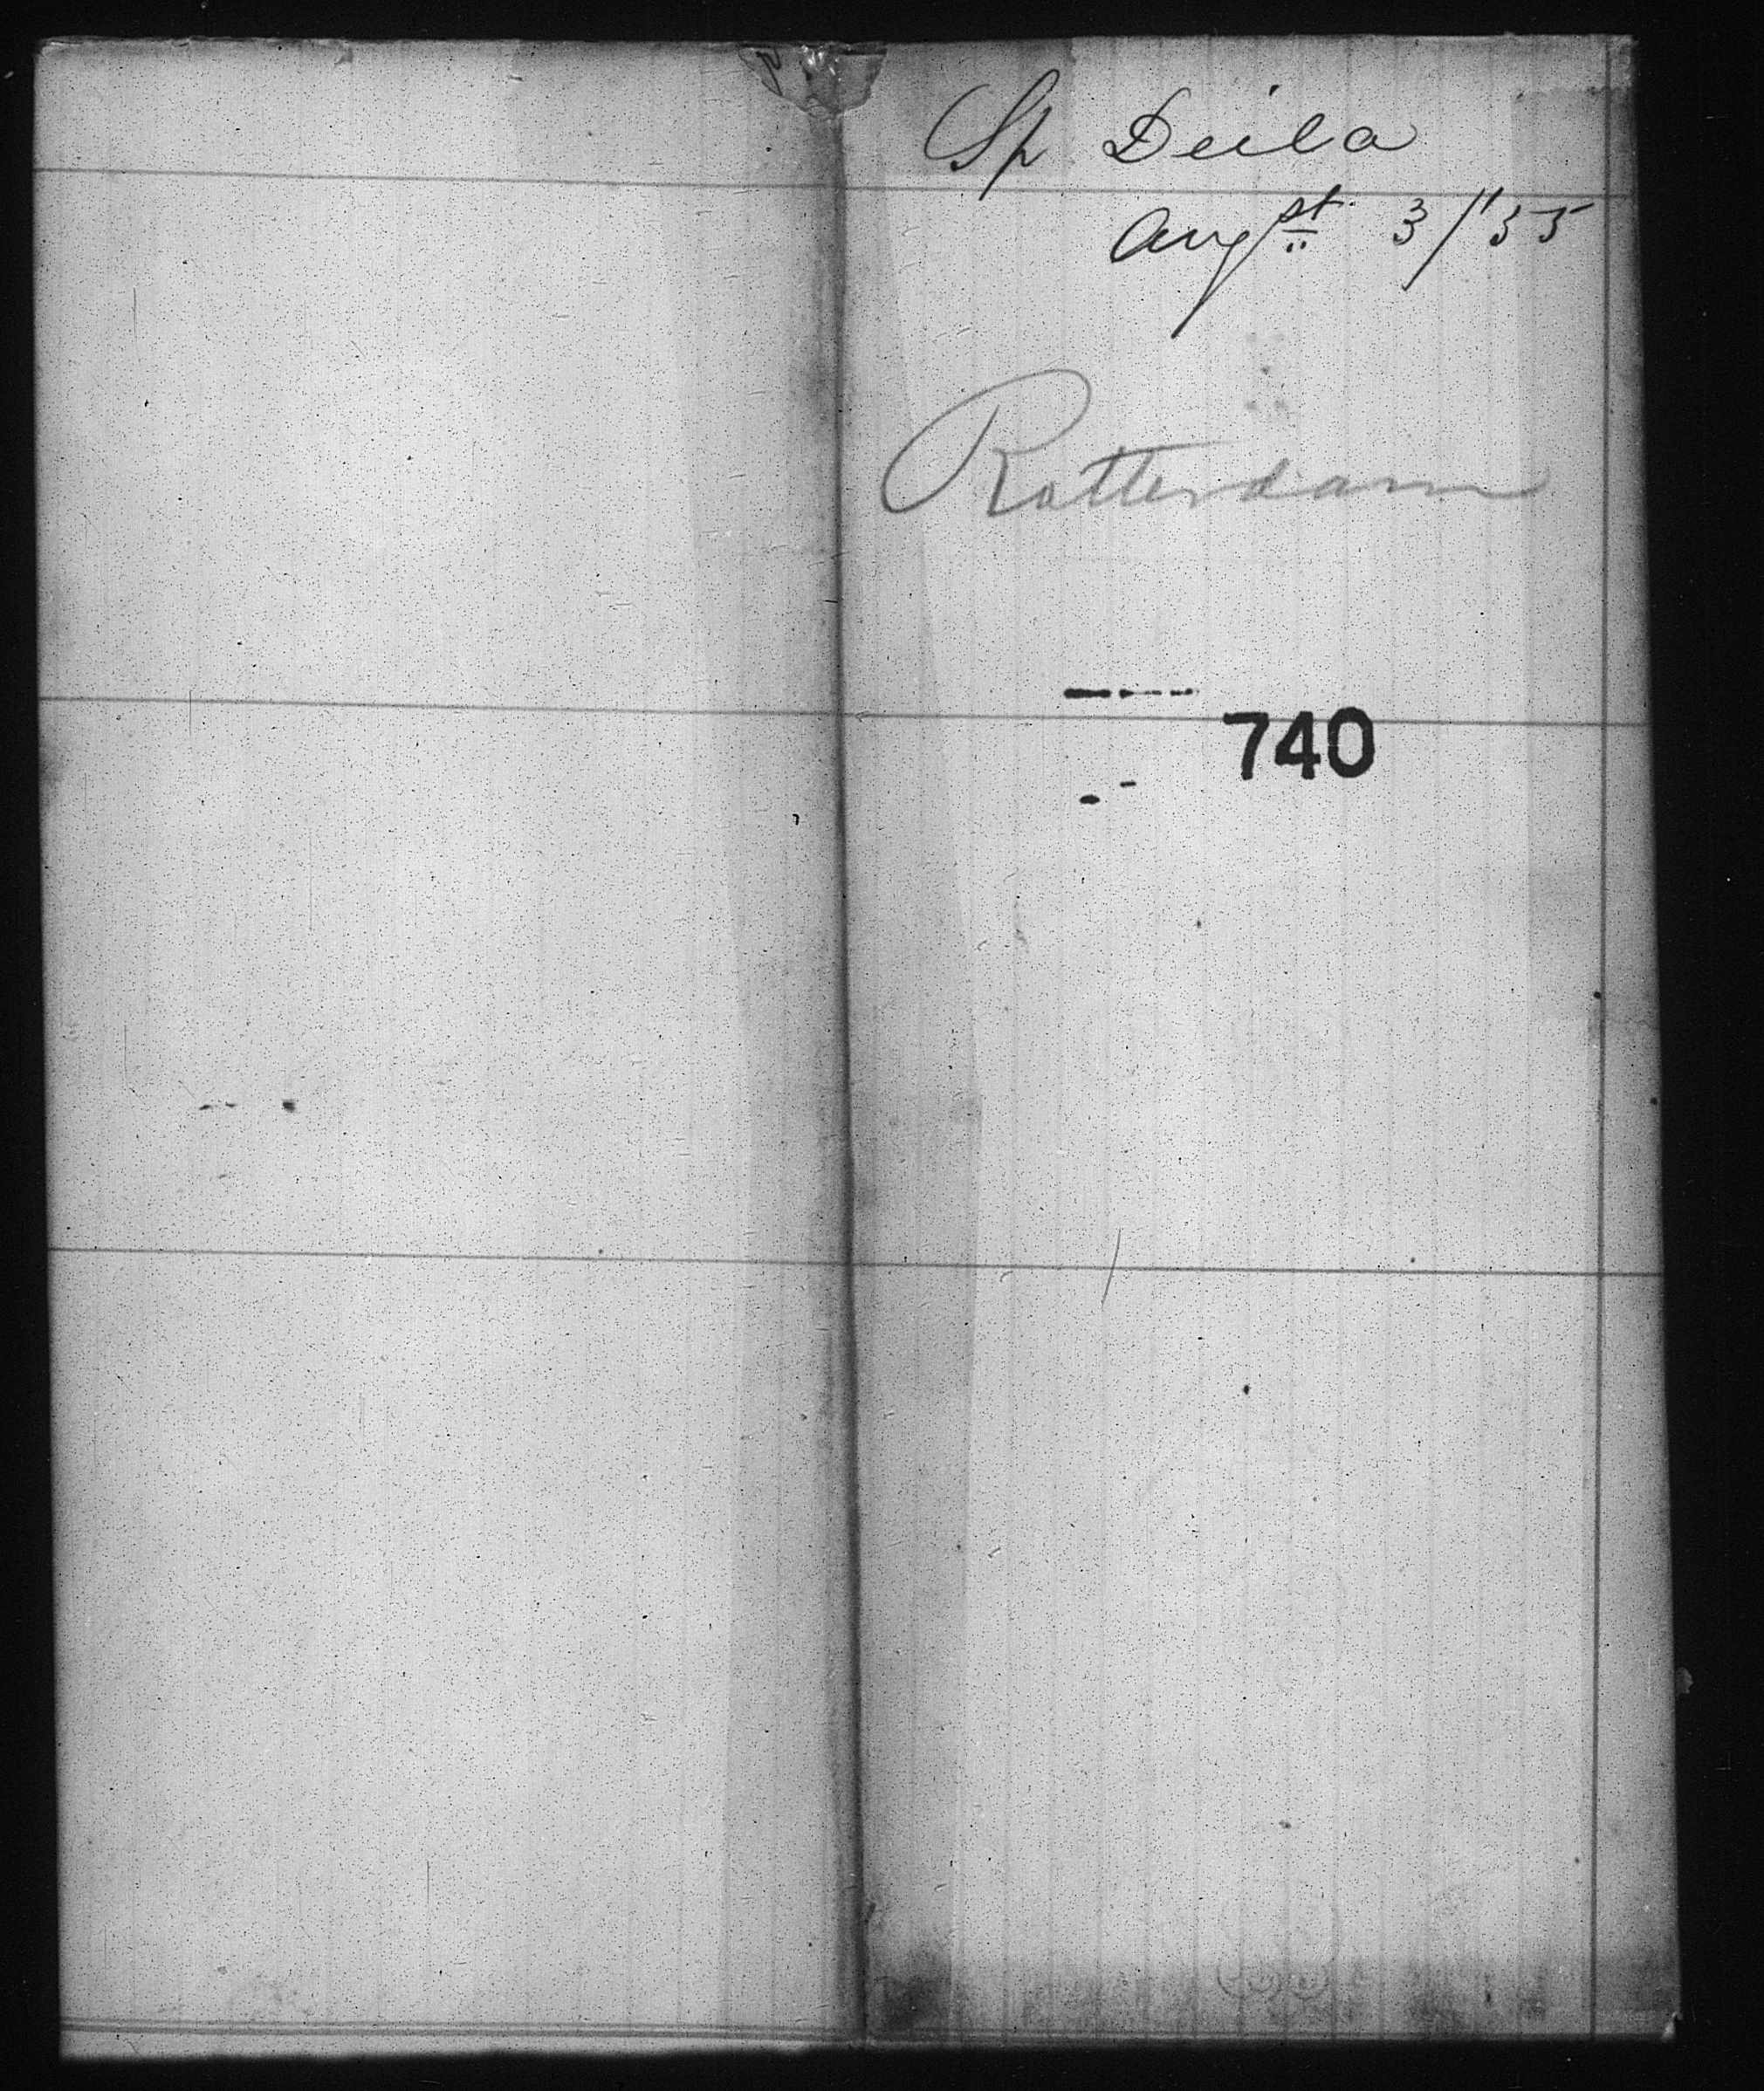 Sp Deila
Augst 3/'55
Rotterdam
740